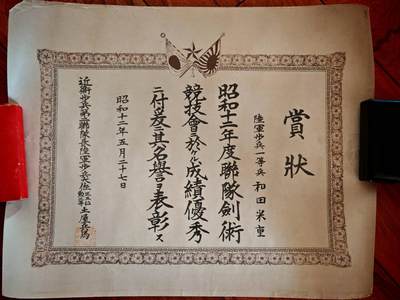 賞狀
陸軍歩兵一等兵 和田米重
昭和十二年度聯隊劍術
競技會ニ於ケル成績優秀
ニ付茲ニ其名譽ヲ表彰ス
昭和十二年五月二十七日
近衛歩兵第聯隊長陸軍歩兵大佐